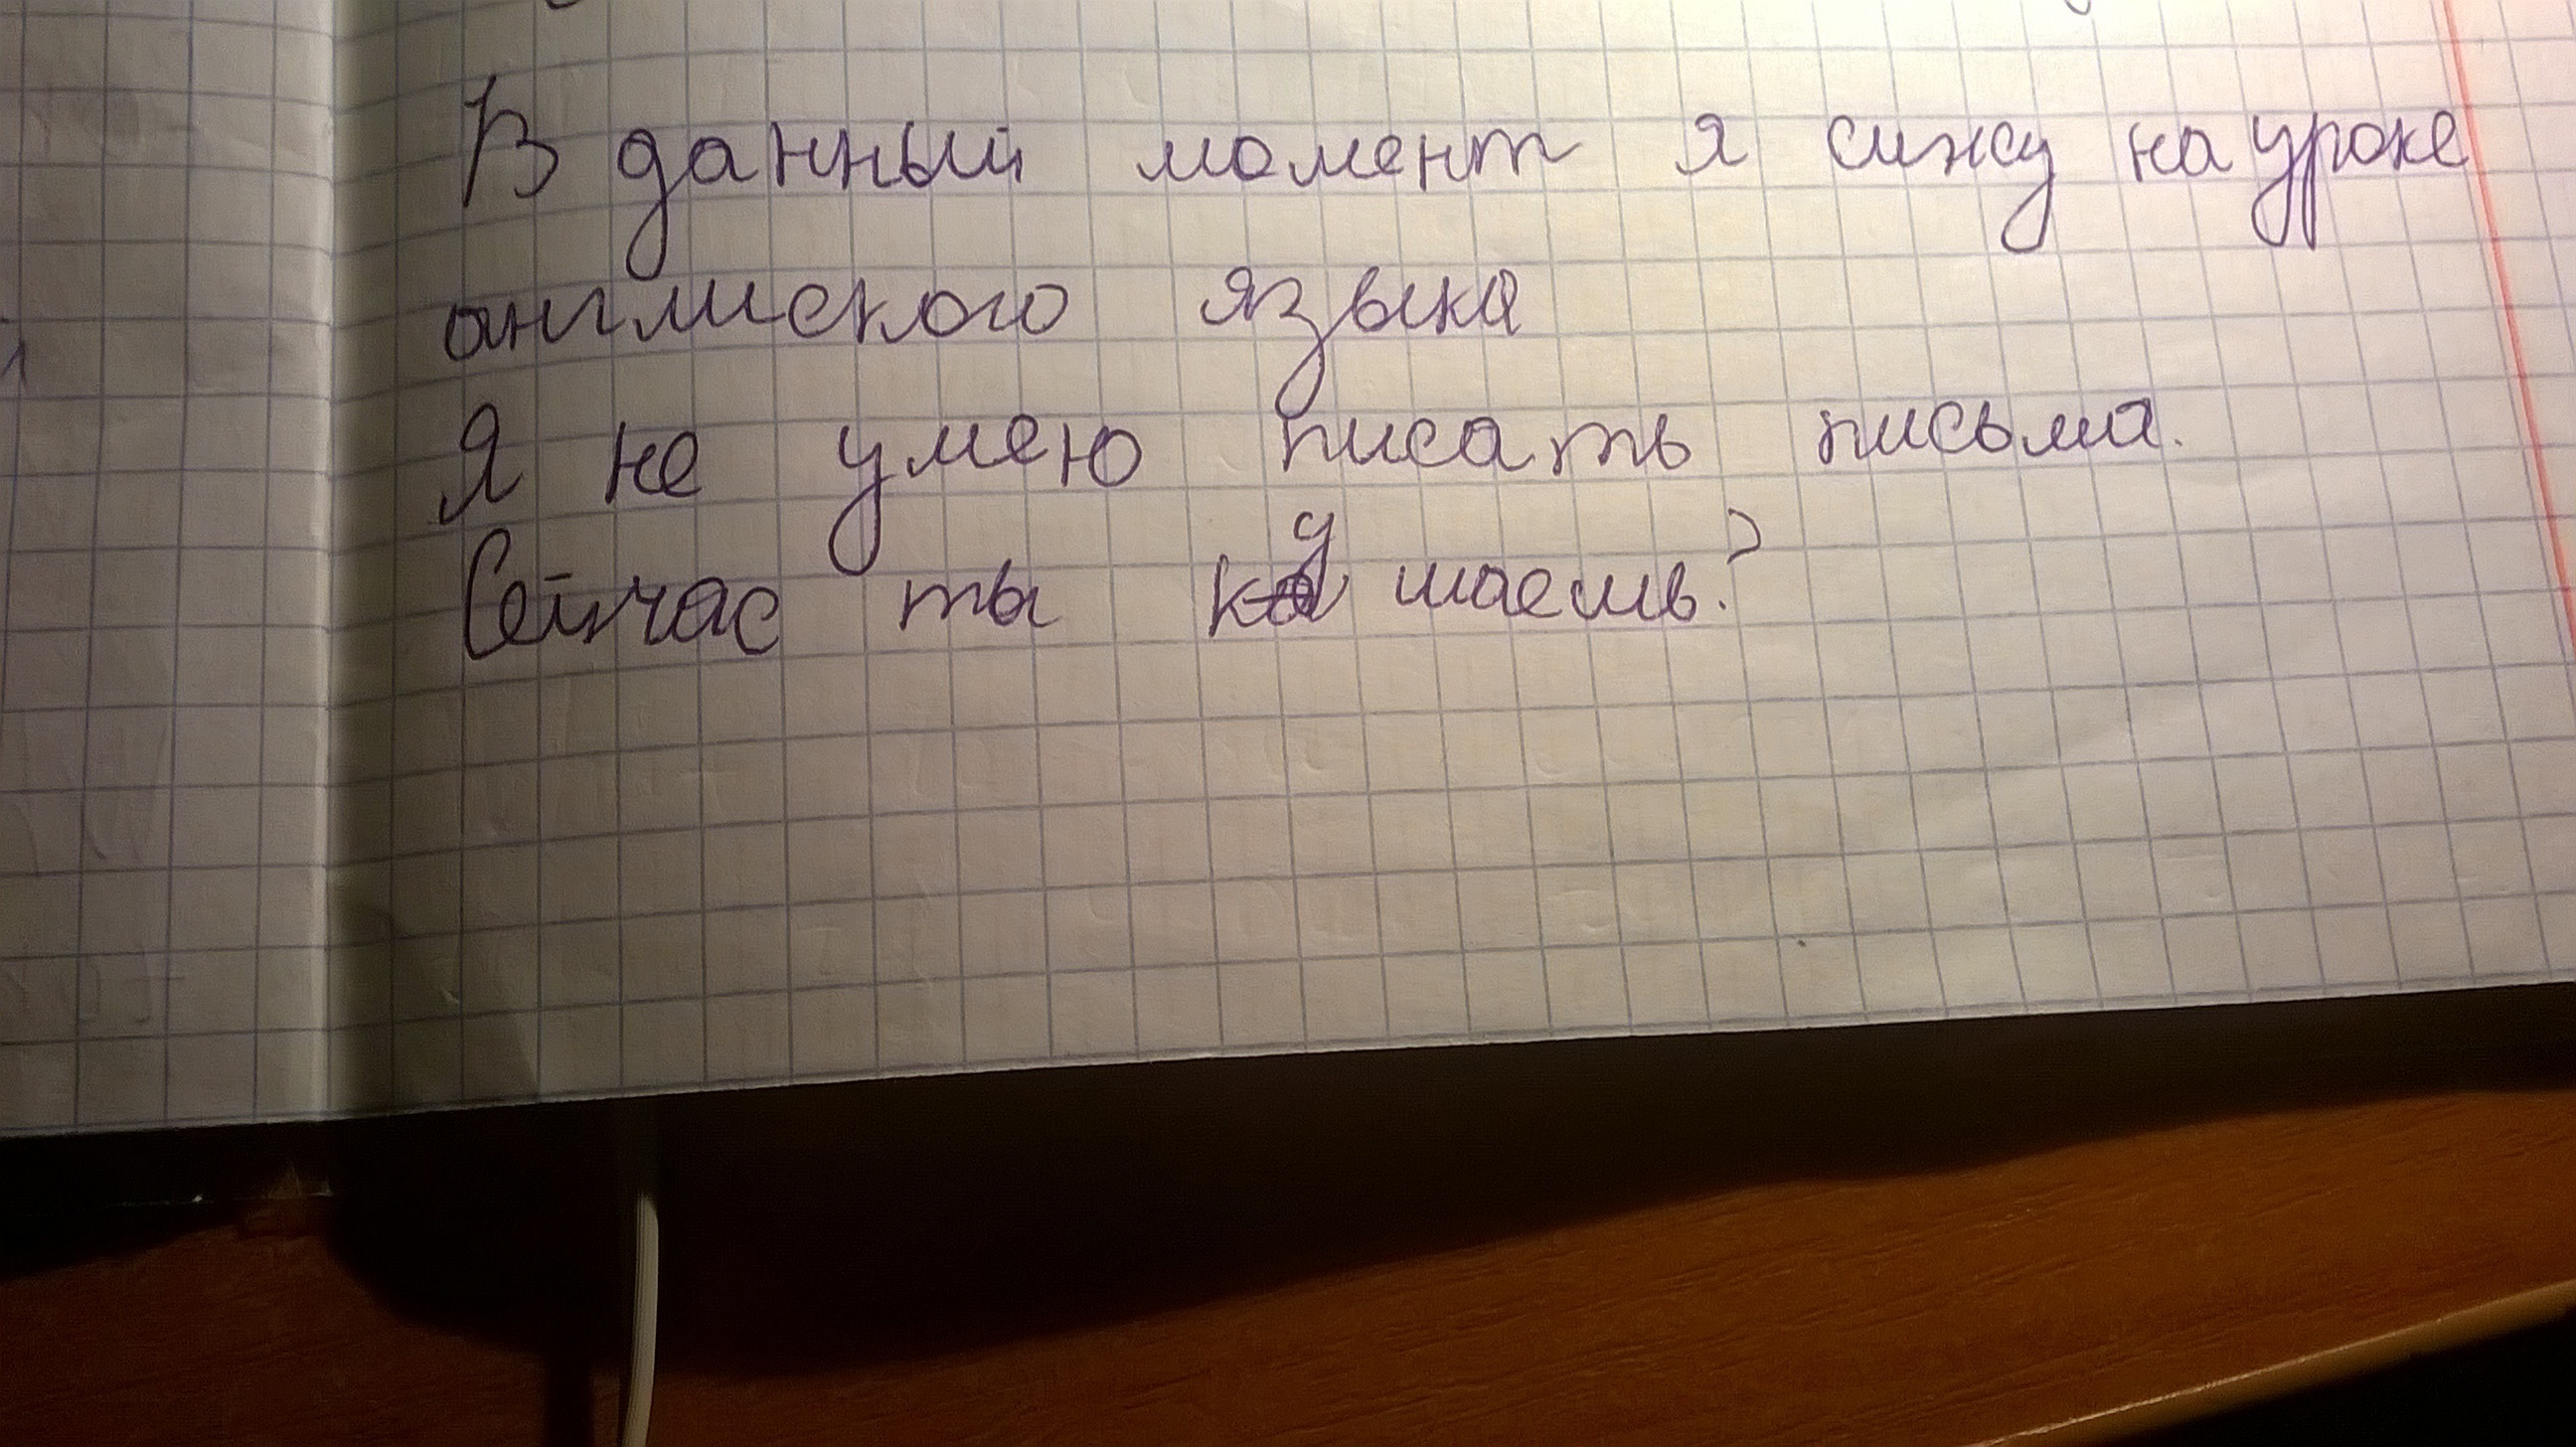 В данный момент я сижу на уроке
англиского языка
Я не умею писать письма.
Сейчас ты кушаешь?